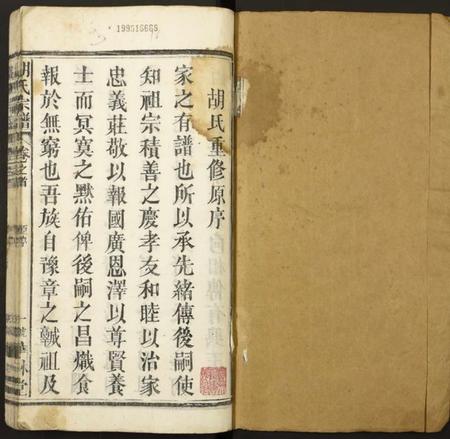 199516665
胡氏重修原序
家之有譜也所以承先緒傳後嗣使
知祖宗積善之慶孝友和睦以治家
忠義莊敬以報國廣恩澤以尊賢養
士而冥寞之黙佑俾後嗣之昌熾食
報於無窮也吾族自豫章之諴祖及
胡氏宗譜 卷之首